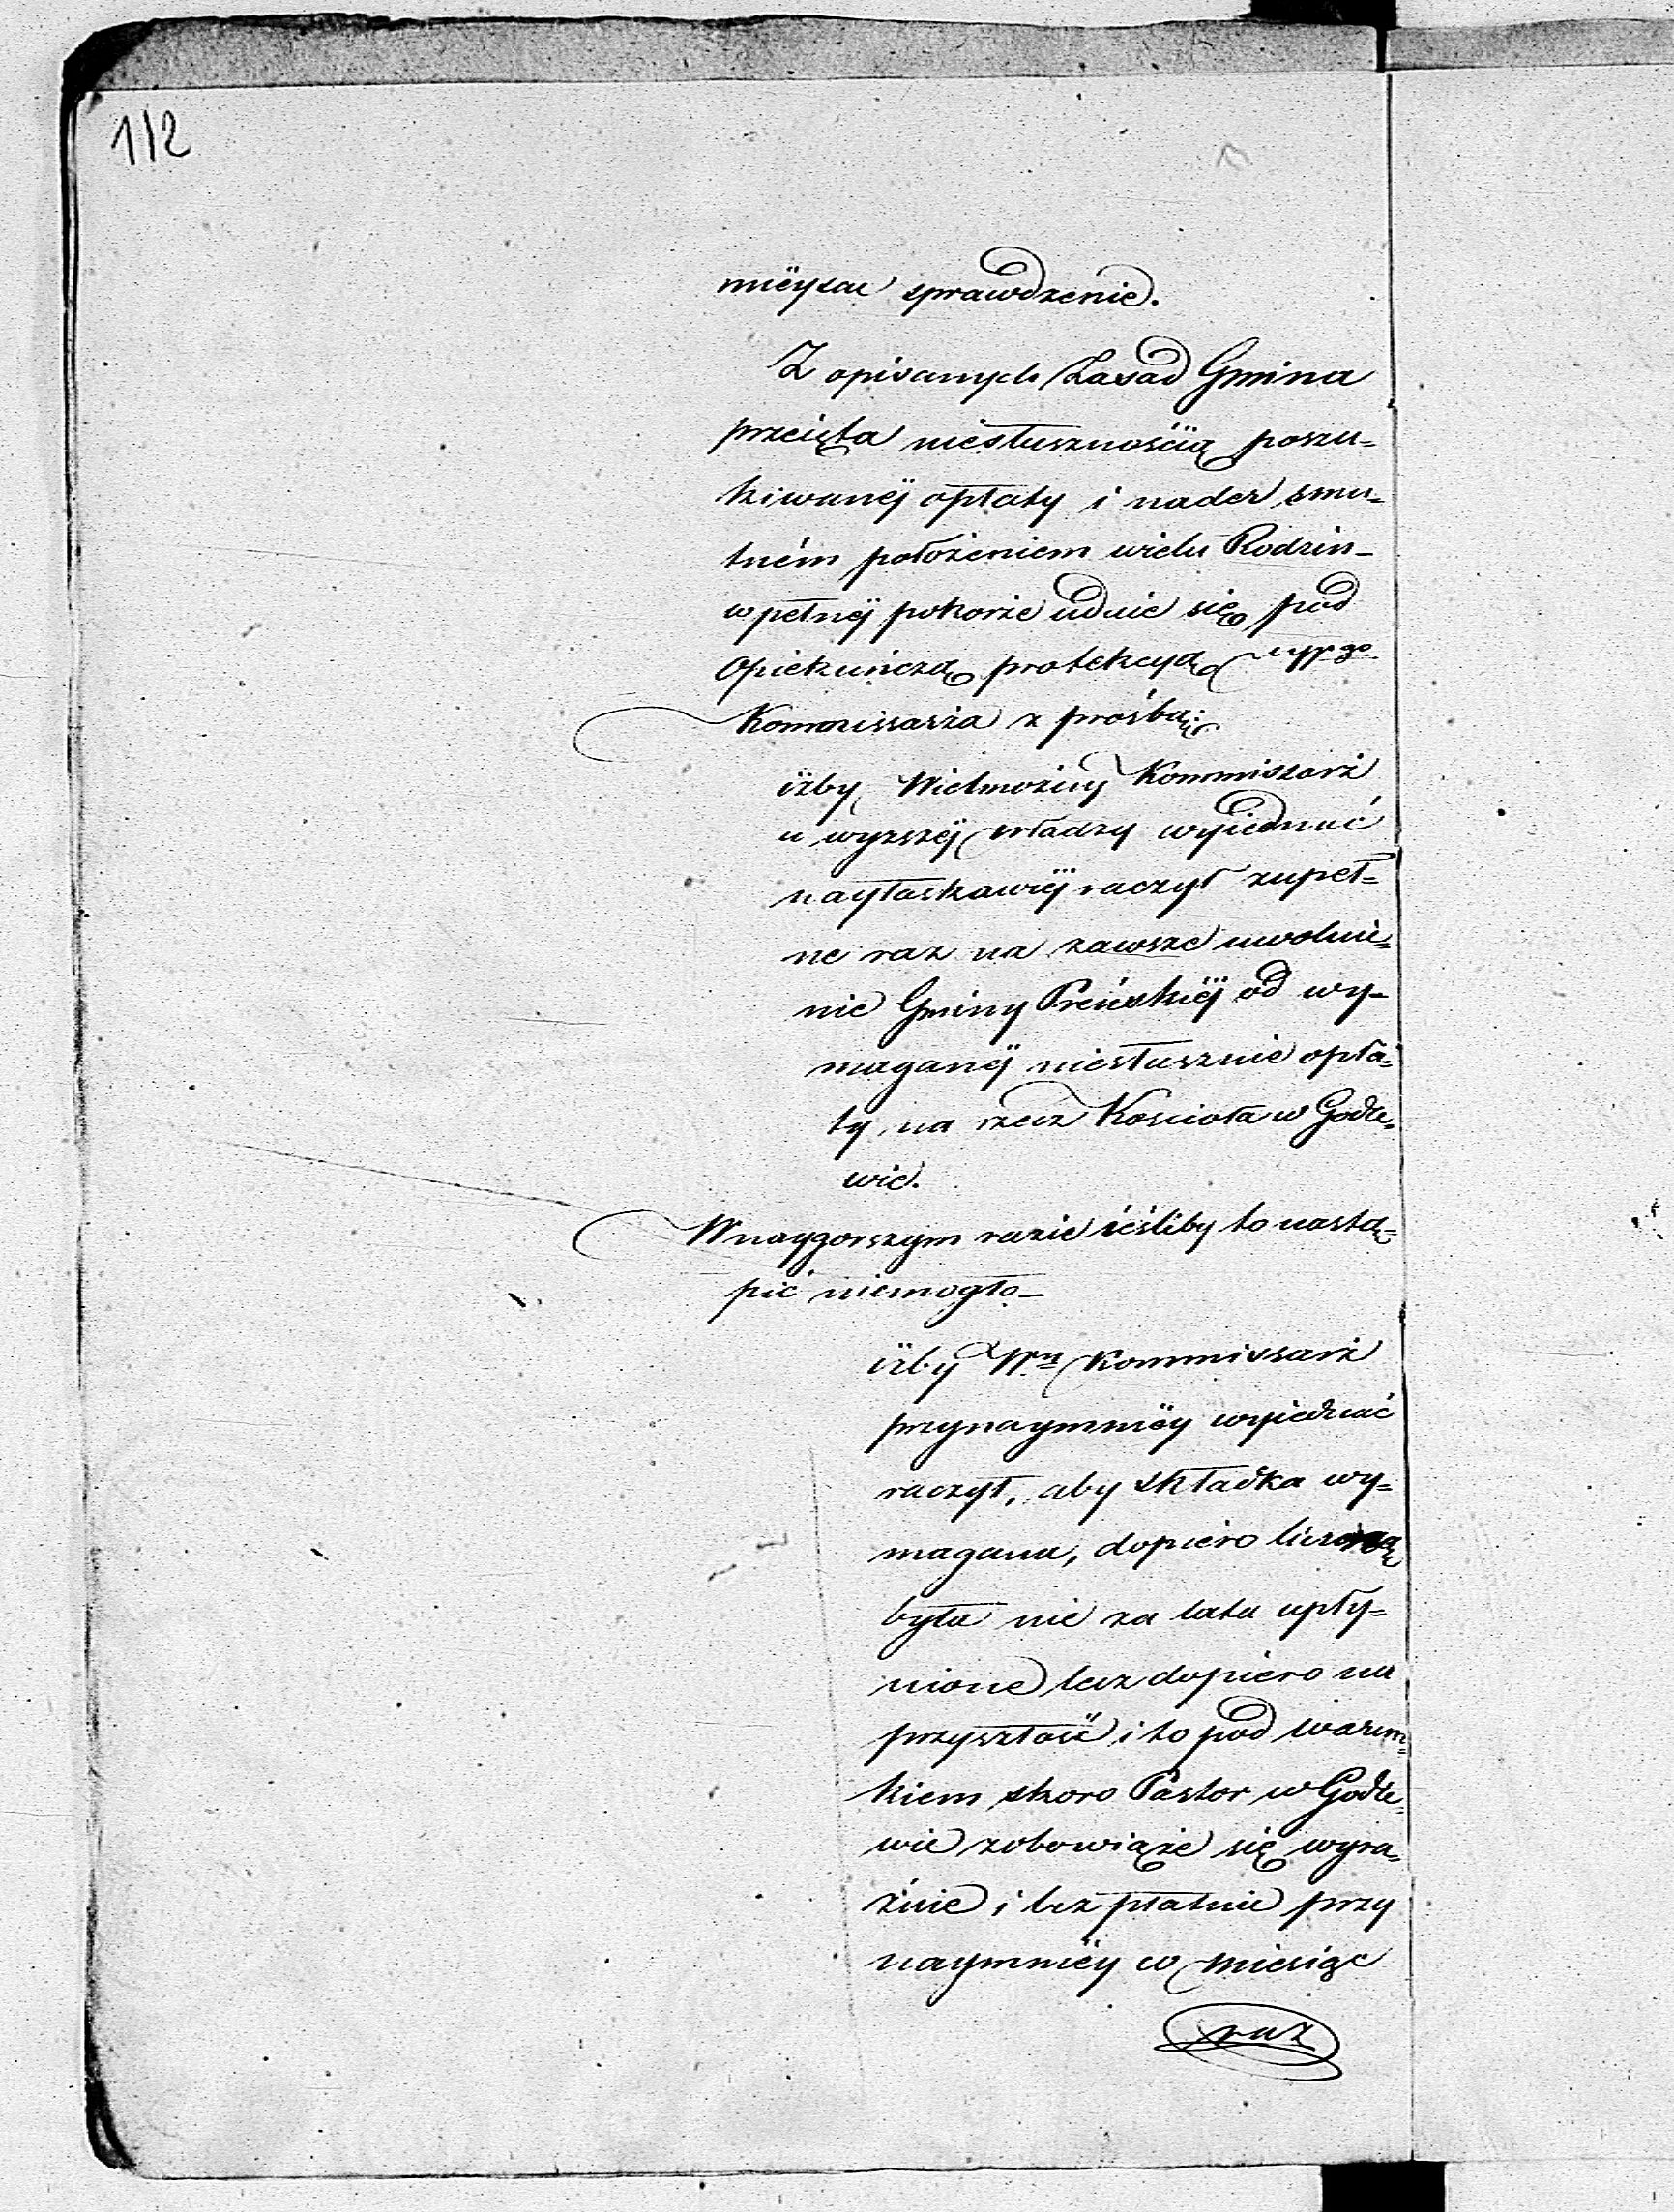 112
mieysce sprawdzenie.
Z opisanych Zasad Gmina
przeięta niesłusznościią poszu=
kiwanéj opłaty i nader smu=
tném położeniem wielu Rodzin_
w pełnéj pokorze udaie się pod
Opiekuńczą protekcyą
Kommissarza z prośbą:
iżby Wielmożny Kommissarz
u wyższéj władzy wyiednać
nayłaskawiéj raczył zupeł=
ne raz na zawsze uwolnie=
nie Gminy Preńskiéj od wy=
maganéj niesłusznie opła=
ty, na rzecz Kościoła w Godle=
wie.
W naygorszym razie ieśliby to nastą=
pić niemogło_
iżby Wny Kommissarz
przynaymniéy wyiednać
raczył, aby składka wy=
magana, dopiéro liczoną
była nie za lata upły=
nione lecz dopiero na
przyszłość i to pod warun=
kiem skoro Pastor w Godle=
wie zobowiąże się wyra=
źnie i bezpłatnie przy
naymniéy co miesiąc
raz